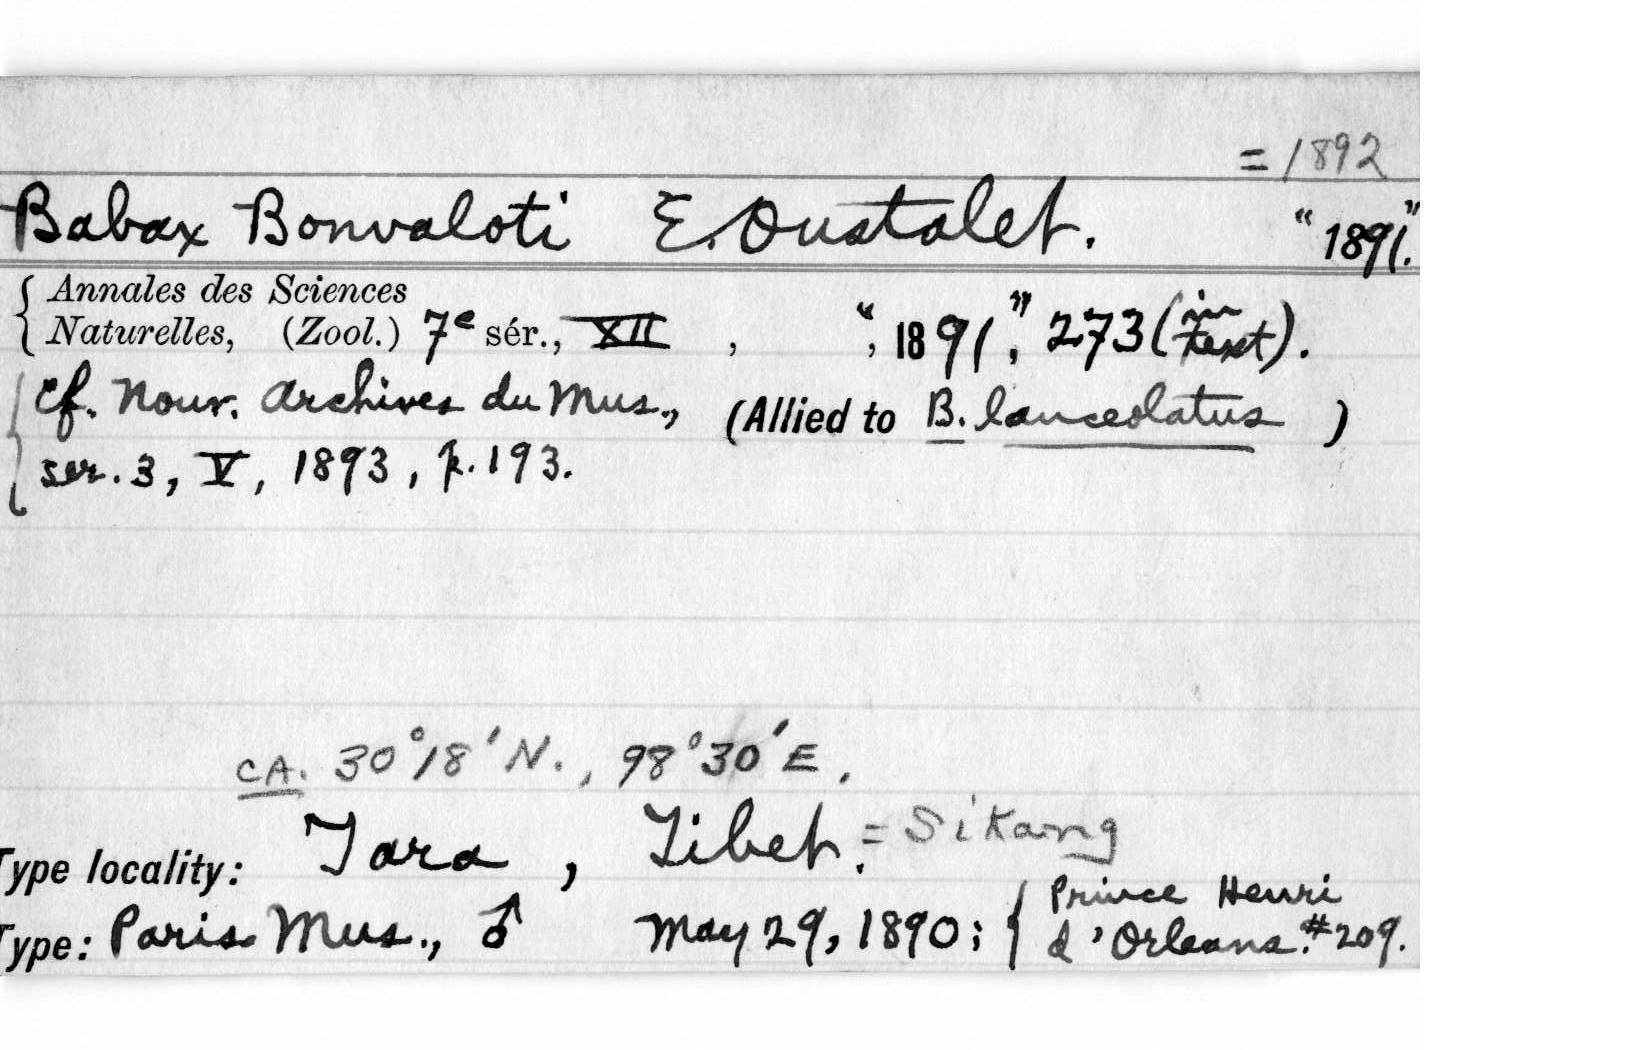 = 1892
Babax Bonvaloti E. Oustalet. "1891."
Annales des Sciences
Naturelles, (Zool.) 7e sér., XII , ", 1891," 273 (in text).
cf. Nouv. Archives du Mus., (Allied to B. lanceolatus )
ser. 3, V, 1893, p. 193.
CA. 30°18' N., 98°30' E.
Type locality: Tara , Tibet. = Sikang
Type: Paris Mus., ♂ May 29, 1890; Prince Henri
d'Orleans. #209.